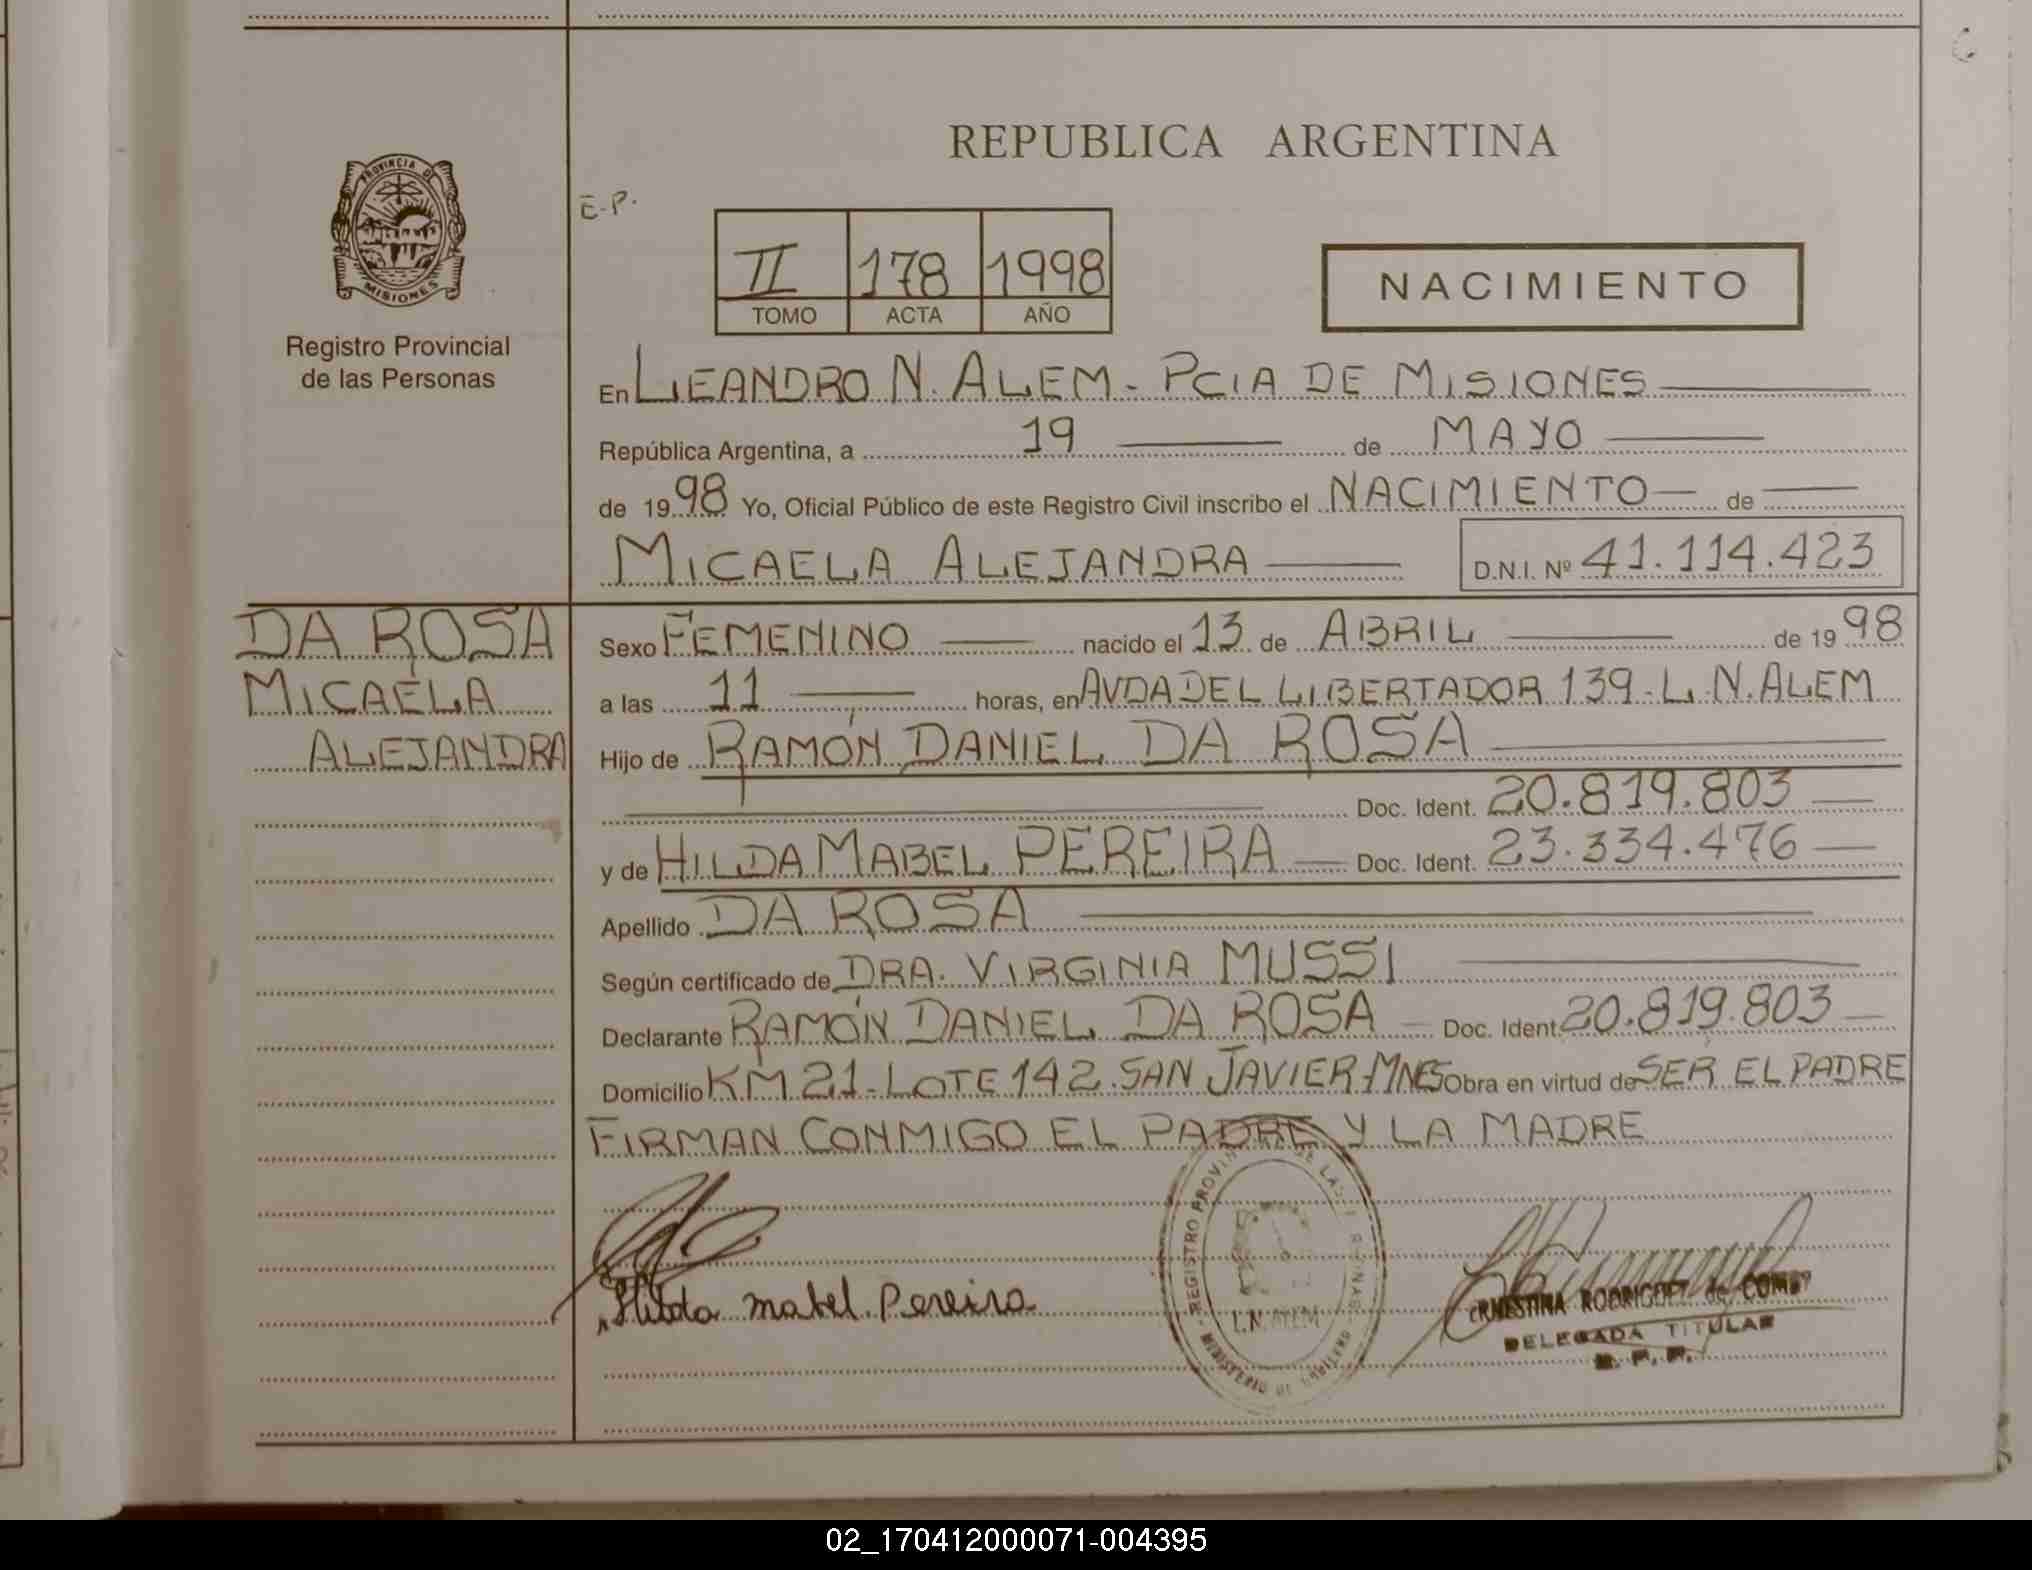 REPUBLICA ARGENTINA
PROVINCIA DE
MISIONES
Registro Provincial
de las Personas
E.P.
II 178 1998
TOMO ACTA AÑO
NACIMIENTO
En LEANDRO N. ALEM - PCIA DE MISIONES
República Argentina, a 19 de MAYO
de 1998 Yo, Oficial Público de este Registro Civil inscribo el NACIMIENTO de
MICAELA ALEJANDRA D.N.I. Nº 41.114.423
DA ROSA
MICAELA
ALEJANDRA
Sexo FEMENINO nacido el 13 de ABRIL de 1998
a las 11 horas, en AVDA DEL LIBERTADOR 139 - L.N. ALEM
Hijo de RAMÓN DANIEL DA ROSA
Doc. Ident. 20.819.803
y de HILDA MABEL PEREIRA Doc. Ident. 23.334.476
Apellido DA ROSA
Según certificado de DRA. VIRGINIA MUSSI
Declarante RAMÓN DANIEL DA ROSA Doc. Ident. 20.819.803
Domicilio KM 21 - LOTE 142. SAN JAVIER - MNES Obra en virtud de SER EL PADRE
FIRMAN CONMIGO EL PADRE Y LA MADRE
Hilda Mabel Pereira
REGISTRO PROVINCIAL DE LAS PERSONAS
MINISTERIO DE GOBIERNO
L.N. ALEM
ERNESTINA RODRIGUEZ de
DELEGADA TITULAR
R. P. P.
02_170412000071-004395